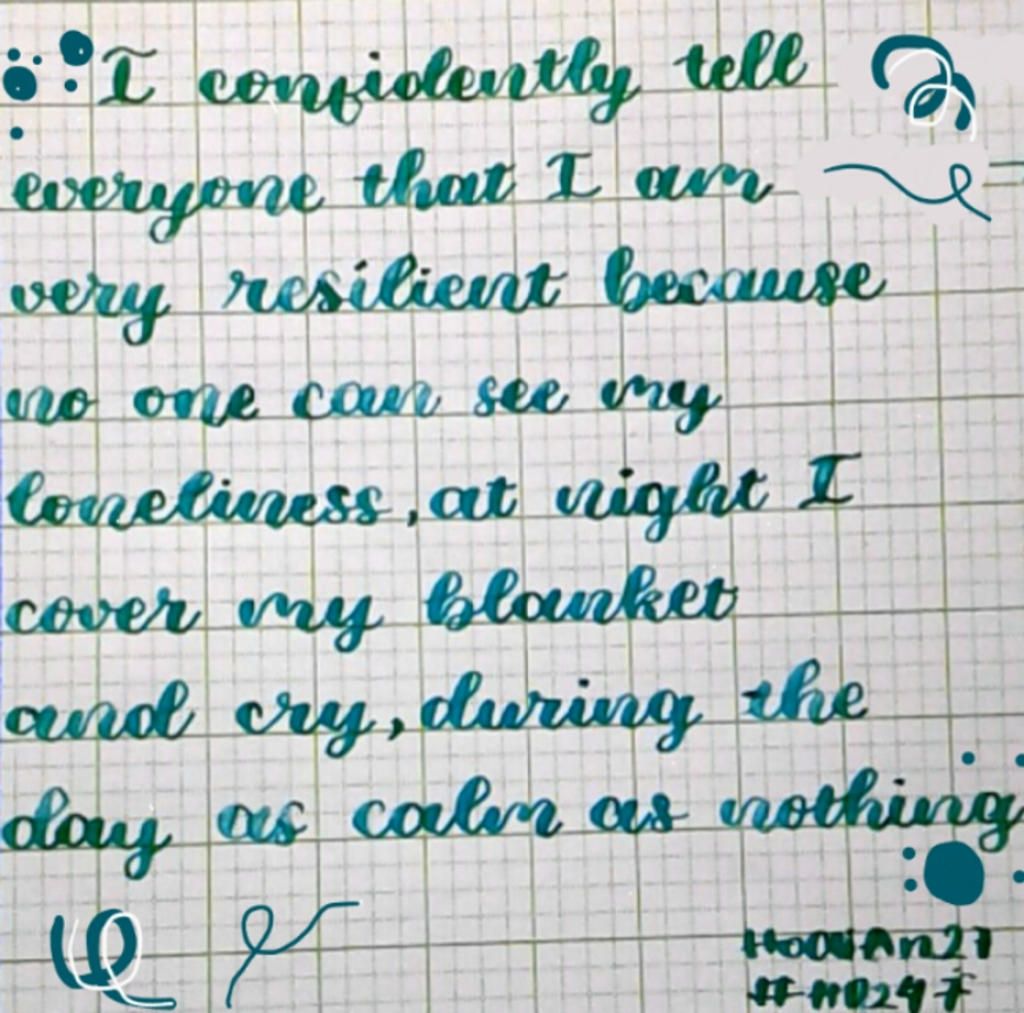 I confidently tell
everyone that I am
very resilient because
no one can see my
loneliness, at night I
cover my blanket
and cry, during the
day as calm as nothing